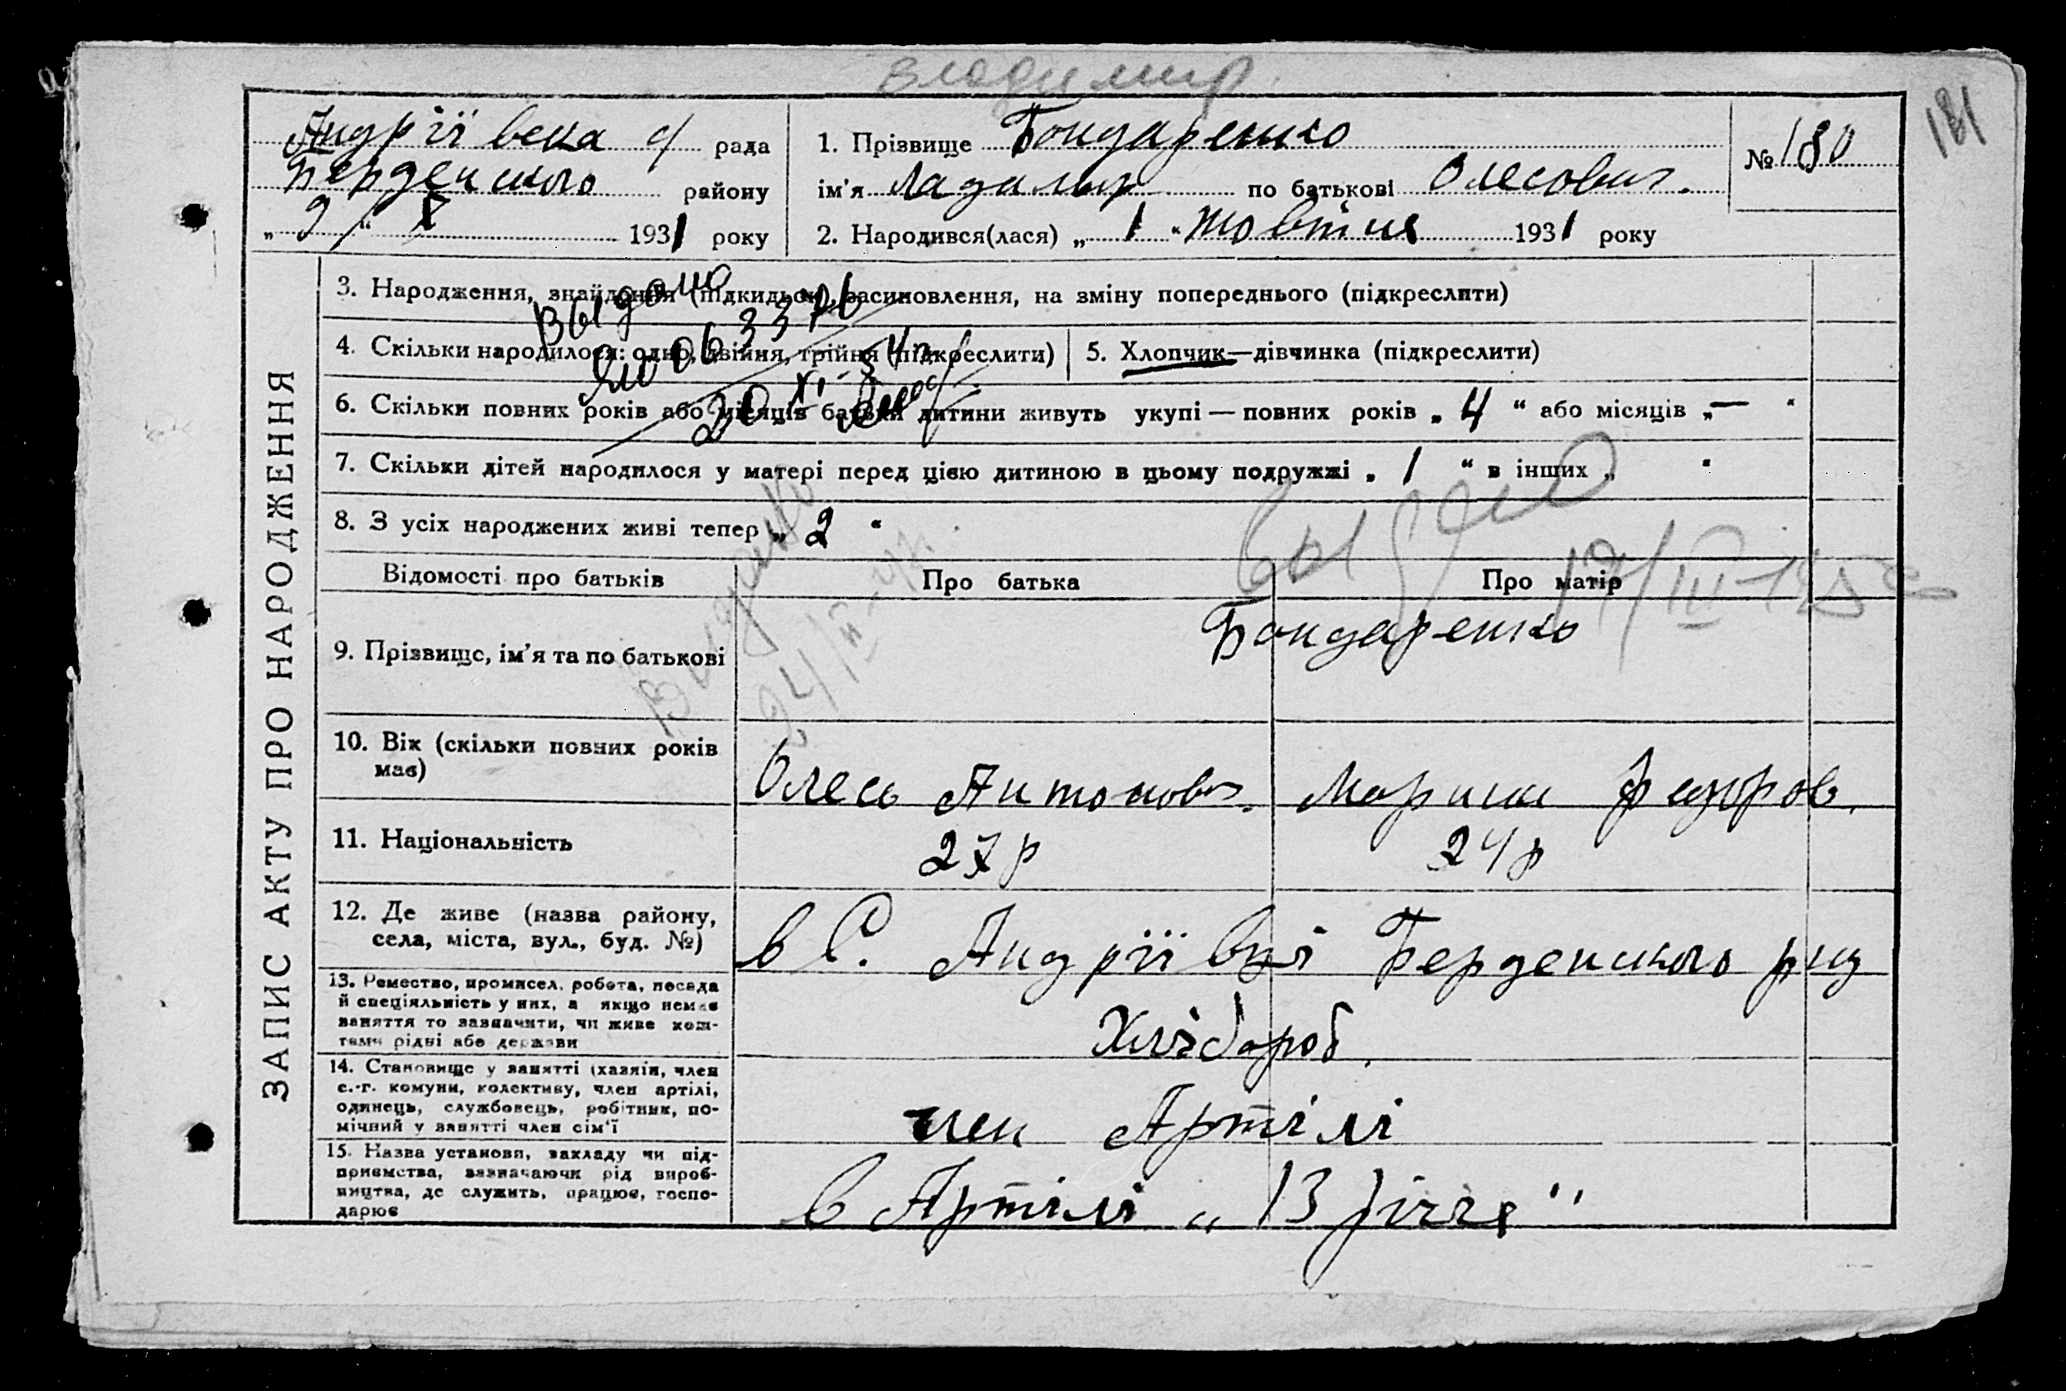 Владимир
181
Андріївська с/ рада
Берденського району
„ 9 / " X 1931 року
1. Прізвище Бондаренко
ім'я Ладимир по батькові Олесович.
2. Народився(лася) „ 1 " жовтня 1931 року
№ 180
ЗАПИС АКТУ ПРО НАРОДЖЕННЯ
3. Народження, знайдення (підкидьок), всиновлення, на зміну попереднього (підкреслити)
Выдано
4. Скільки народилося: одно, двійня, трійня (підкреслити)
5. Хлопчик—дівчинка (підкреслити)
6. Скільки повних років або місяців батьки дитини живуть укупі — повних років „ 4 " або місяців „ — "
7. Скільки дітей народилося у матері перед цією дитиною в цьому подружжі „ 1 " в інших „ "
8. З усіх народжених живі тепер „ 2 "
Выдано
Відомості про батьків
Про батька
Про матір
9. Прізвище, ім'я та по батькові
Бондаренко
10. Вік (скільки повних років має)
Олесь Антонович.
Марина Федоров.
11. Національність
27 р
24 р
12. Де живе (назва району,
села, міста, вул., буд. №)
в С. Андріївці Берденського рну
13. Ремество, промисел, робота, посада
й спеціяльність у них, а якщо немає
заняття то зазначити, чи живе кош-
тами рідні або держави
Хлібороб.
14. Становище у занятті (хазяїн, член
с.-г. комуни, колективу, член артілі,
одинець, службовець, робітник, по-
мічний у занятті член сім'ї
член Артілі
15. Назва установи, закладу чи під-
приємства, зазначаючи рід вироб-
ництва, де служить, працює, госпо-
дарює
в Артілі „ 13 річчя "